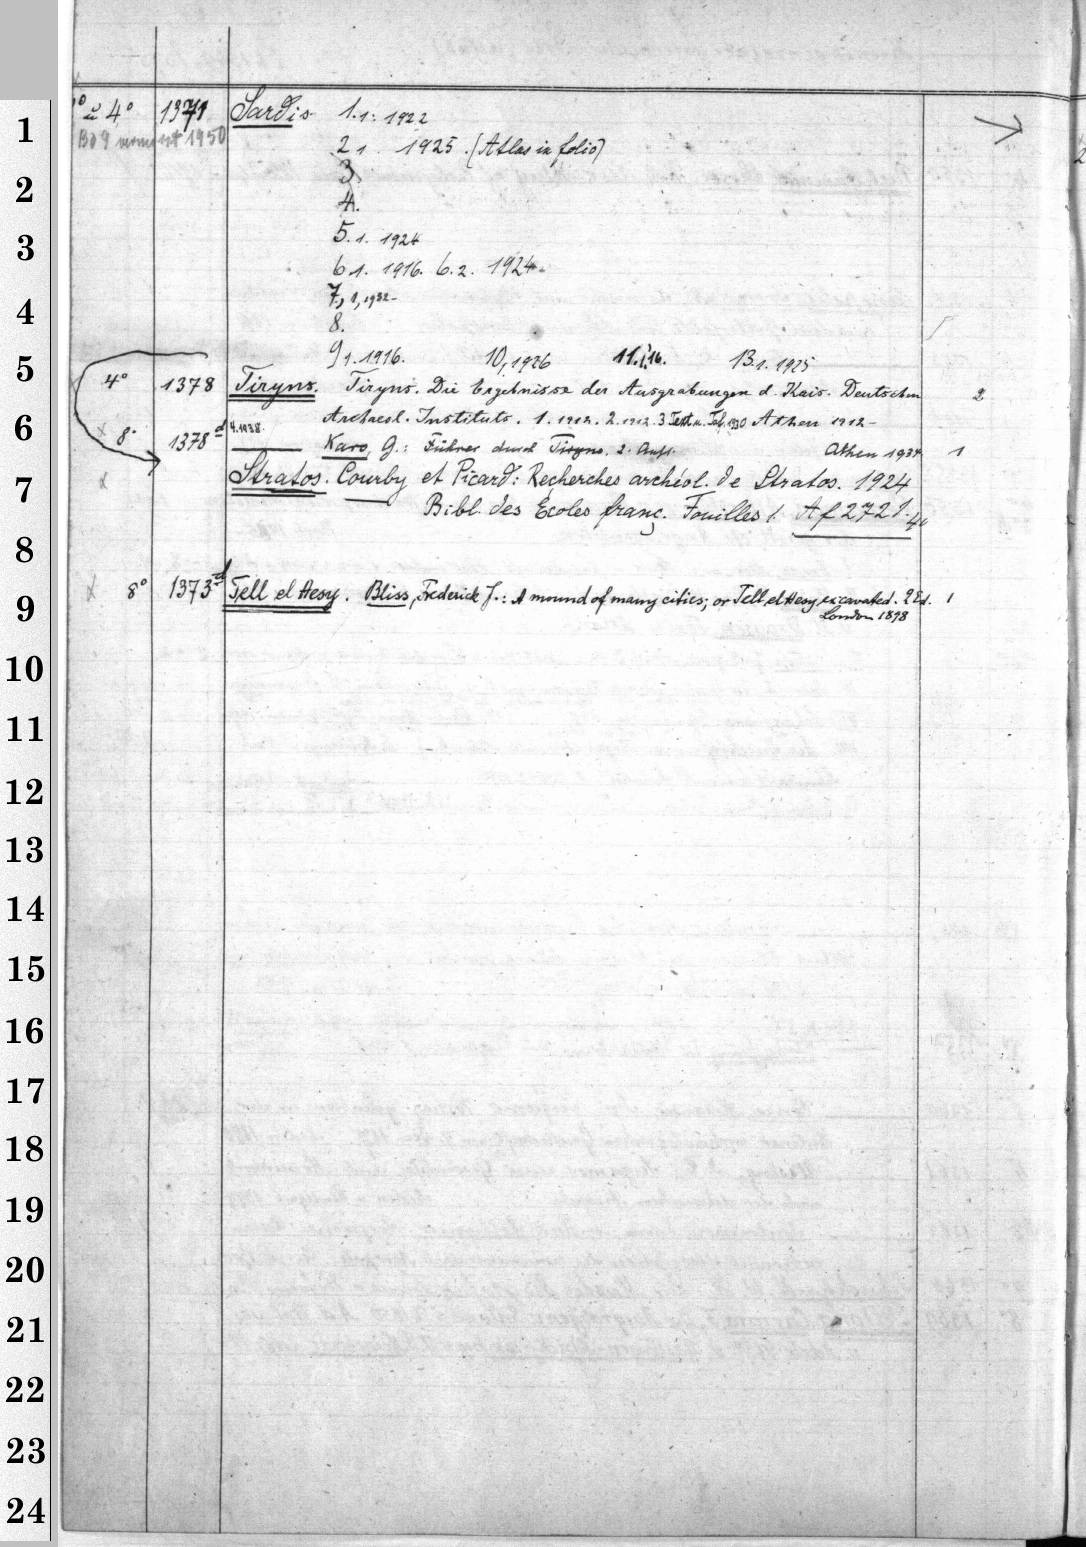 2° u 4° 1371 Sardis. 1.1. 1922
Bd 9 vermisst 1950
2 1. 1925. (Atlas in folio)
3
4.
5.1. 1924
6 1. 1916. 6.2. 1924.
7, 1, 1932-
8.
9 1. 1916. 10, 1926 11.1,16. 13.1. 1925
4° 1378 Tiryns. Tiryns. Die Ergebnisse der Ausgrabungen d. Kais. Deutschen 2
4. 1938. Archaeol. Instituts. 1. 1912. 2. 1912. 3 Text u. Taf. 1930 Athen 1912-
8° 1378d Karo, G.: Führer durch Tiryns. 2. Aufl. Athen 1934. 1
Stratos. Courby et Picard: Recherches archéol. de Stratos. 1924
Bibl. des Écoles franç. Fouilles 1. Af 2721. 4°
8° 1373d Tell el Hesy. Bliss, Frederick J.: A mound of many cities; or Tell el Hesy excavated. 2 Ed. 1
London 1898
1
2
3
4
5
6
7
8
9
10
11
12
13
14
15
16
17
18
19
20
21
22
23
24